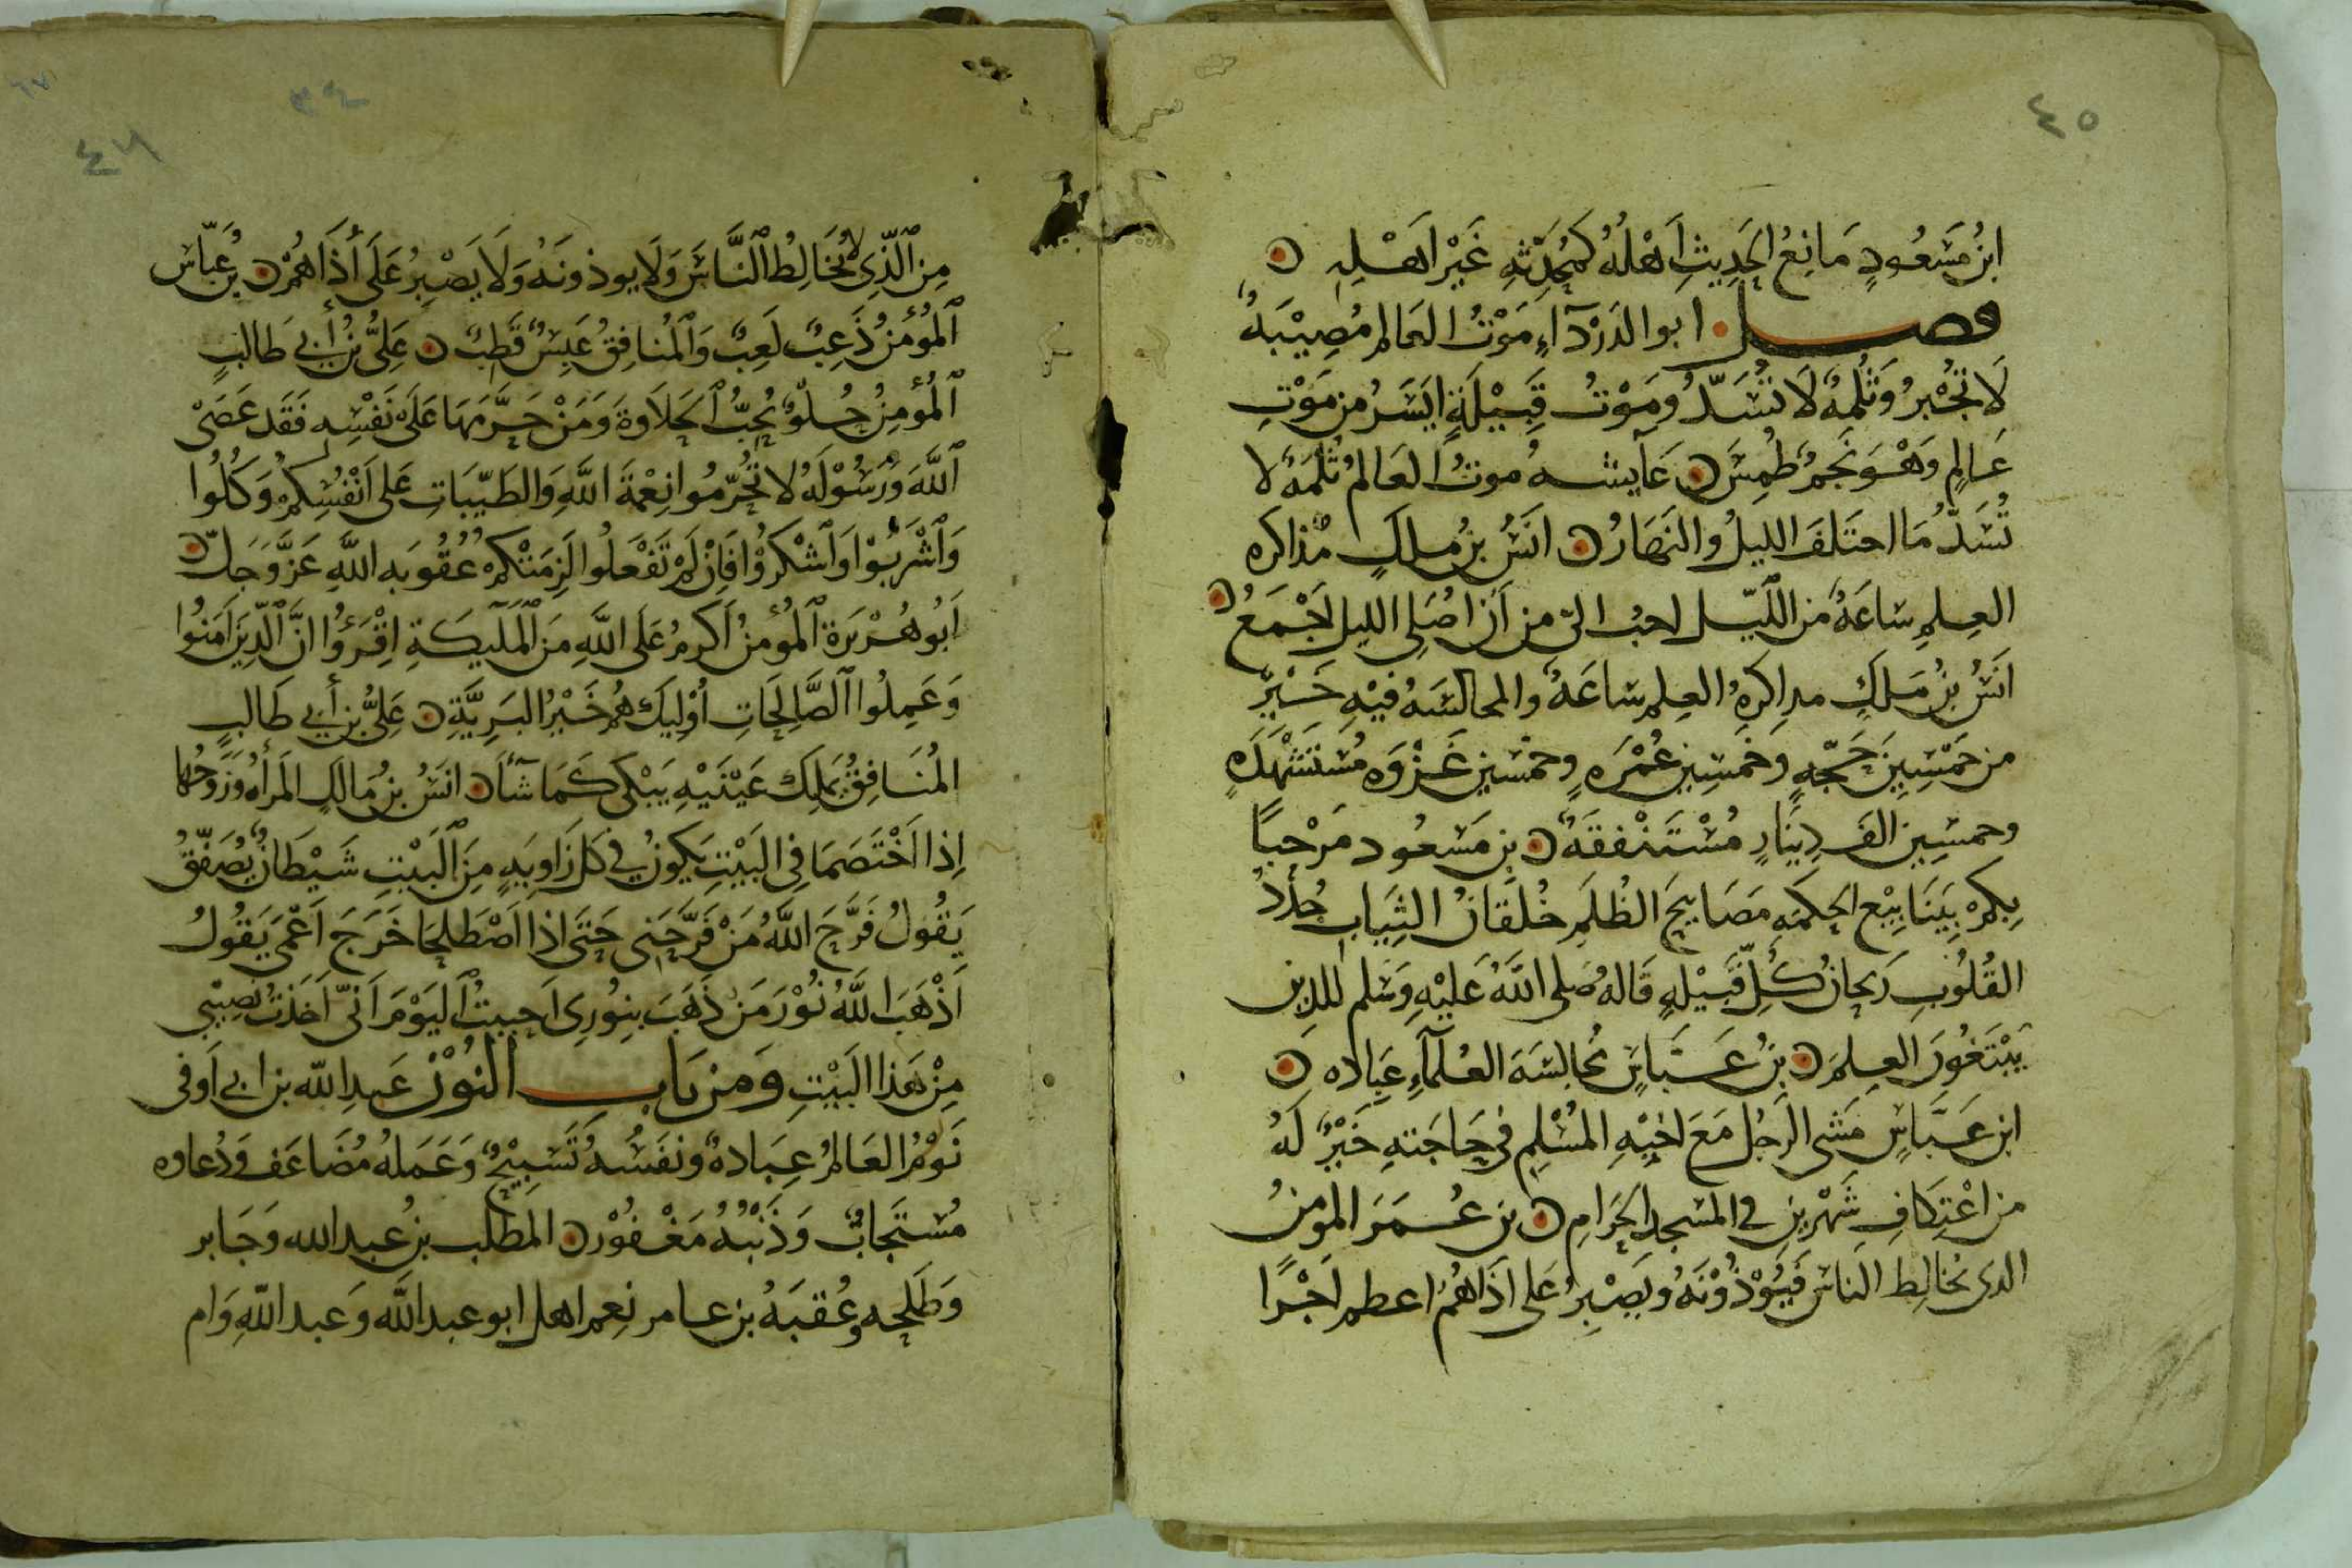 ٤٥
ابنُ مَسْعُودٍ مَانِعُ الحَدِيثِ اَهْلَهُ كَمُحَدِّثِهِ غَيْرَ اَهْلِهِ
فصل ابو الدَرْدَآءِ مَوْتُ العَالِم مُصِيْبَةٌ
لَا تُجْبَرُ وَثُلْمَةٌ لَا تُسَدُّ وَمَوْتُ قَبِيْلَةٍ ايْسَرُ من مَوْتِ
عَالِمٍ وَهْوَ نَجمٌ طُمِسَ عَآيشه موتُ العَالم ثُلمَةٌ لا
تُسَدُّ مَا اختَلَفَ الليلُ والنَهَارُ انَسُ بنُ ملكٍ مذاكره
العِلمِ سَاعَةً من اللَّيل احبُ اليّ من أن اصَلي الليل اَجْمَعُ
انَسُ بنُ مَلكٍ مذاكرهُ العِلم ساعَةً والمجالسَهُ فيْهِ خَيْرٌ
من خَمْسِينَ حَجّهٍ وخَمسِينَ عُمْرَهٍ وخمْسِينَ غَزْوَه مُسْتَشْهَدَهٍ
وخمسِين الفَ دِينَارٍ مُسْتَنْفقَهٌ بن مَسْعُود مَرْحبًا
بِكمْ يَنَابِيْع الحِكمَهِ مَصَابيحَ الظُلَمِ خُلقَانُ الثِيَابِ جُدُدُ
القُلُوبِ رَيحانُ كُلّ قَبيْلهٍ قَالهُ صَلى اللهُ عَليْهِ وَسَلم للدين
يَبْتَغُونَ العِلمَ بنُ عَبَّاسٍ مُجالسَهَ العُلمَآءِ عبَاده
ابن عَبَّاسٍ مَشى الرَجُل مَعَ اخيْهِ المُسْلِم في حَاجَتهِ خَيْرٌ لَهُ
من اعْتِكَافِ شَهْرين في المَسجد الحَرَامِ بن عُمَرَ المومنُ
الدى يخَالِطُ النَاسَ فَيُؤذُوْنَهُ ويَصْبِرُ عَلى اذَاهُمْ اعظم اَجْرًا
٣٤
٤٦
مِنَ ٱلَّذِى لا يُخَالِطُ ٱلنَّاسَ وَلَا يوذونَهُ وَلَا يَصْبِرُ عَلَى أذَاهُمْ بن عَبَّاس
ٱلمُؤمِنُ ذَعِبٌ لَعِبٌ وَٱلمُنافِقُ عَبِسٌ قَطِبٌ عَلِيُّ بْنُ أَبِي طَالبٍ
ٱلمُؤمِنُ حُلوٌ يُحِبُّ ٱلحَلاَوةَ وَمَنْ حَرَّمَهَا عَلَى نَفْسِهِ فَقَد عَصَى
ٱللَّهَ وَرَسُوْلَهُ لا تُحَرّمُوا نِعْمَةَ اللَّهِ وَالطَيّبَاتِ عَلى اَنْفُسِكُمْ وَكُلُوا
وَٱشْرَبُوْا وَٱشْكُرُوْا فَإنْ لَمْ تَفْعَلُوا لَزِمَتْكُمْ عُقُوبَه اللَّهِ عَزَّ وَجَلّ
اَبُو هُرْيَرة ٱلمُؤمنُ اَكرمُ عَلَى اللَّهِ مِنَ ٱلمَلَآيِكَةِ إقْرَؤُا انَّ ٱلَّذِينَ آمَنُوا
وَعَمِلُوا ٱلصَّالِحَاتِ اُوْلَيِكَ هُمْ خَيْرُ البَرِيَّةِ عَلِيُّ بن أَبِي طَالبٍ
المُنَافِقُ يَملِكُ عَيْنَيْهِ يَبْكى كَمَا شَآءَ انَسُ بنُ مَالكٍ المَرأهُ وَزَوجُهَا
اِذا اَخْتَصَمَا فِى البَيْتِ يَكونُ في كل زَاوِيَهٍ مِنَ ٱلبَيْتِ شَيْطَانٌ يُصَفّقُ
يَقُولُ فَرَّحَ اللَّهُ مَنْ فَرَّحَنى حَتَّى اذا اصْطَلحَا خَرَجَ اَعْمَى يَقُولُ
اَذْهَبَ اللَّهُ نُوْرَ مَن ذَهَبَ بنِوُرِى اَحببتُ اليَوْمَ اَنّى اَخَذْتُ نَصِيْبى
مِنْ هَذا البَيْتِ وَمن بَاب النُوْنْ عَبدِ الله بن ابى اَوفى
نَوْمُ العَالمِ عِبَادهٌ ونَفَسُهُ تَسْبِيْحٌ وَعَمَلهُ مُضَاعَف وَدُعاوه
مُسْتَجَابٌ وَذَنْبُهُ مَغْفُوْر المَطلب بنُ عبد الله وَجَابر
وَطَلحه وعُقبَهُ بن عامر نِعمَ اهل ابو عبد الله وَعبد اللهِ وَام